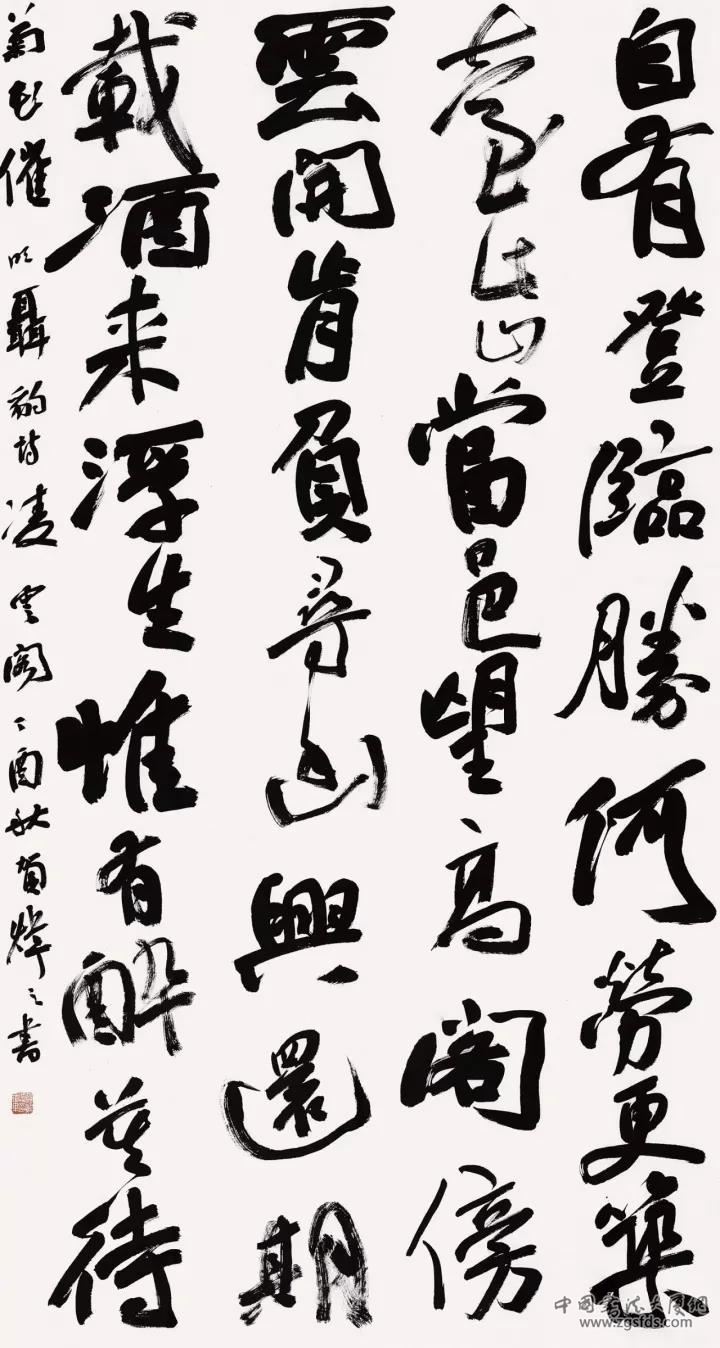 自有登臨勝何勞更築
臺此山當邑望高閣傍
雲開肯負尋山興還期
載酒来浮生惟有醉莫待
菊花催 明聶豹詩凌雲閣丁酉秋賀之書
www.zgsfds.com